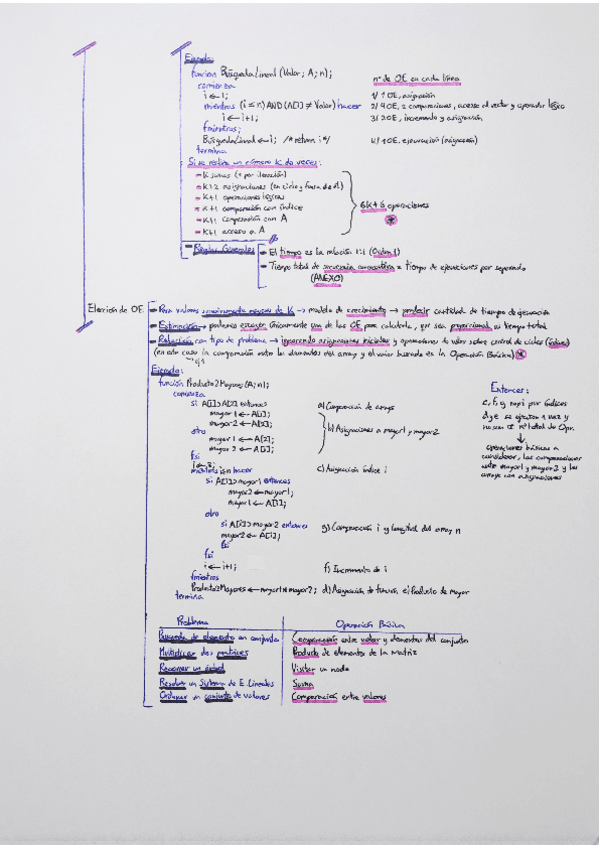 Ejemplo:
función BúsquedaLineal (Valor; A; n);
comienza
i ← 1;
mientras (i ≤ n) AND (A[i] ≠ Valor) hacer
i ← i+1;
fmientras;
BúsquedaLineal ← i; /* return i */
termina
nº de OE en cada línea
1/ 1 OE, asignación
2/ 4 OE, 2 comparaciones, acceso al vector y operador lógico
3/ 2 OE, incremento y asignación
4/ 1 OE, ejecución (asignación)
Si se realiza un número K de veces:
- K sumas (1 por iteración)
- K+2 asignaciones (en ciclo y fuera de él)
- K+1 operaciones lógicas
- K+1 comparación con índice
- K+1 comparación con A
- K+1 acceso a A
6K+6 operaciones
- Reglas Generales
- El tiempo es la relación 1:1 (Orden 1)
- Tiempo total de secuencia consecutiva = tiempo de ejecuciones por separado
(ANEXO)
Elección de OE
- Para valores de K → modelo de crecimiento → predecir cantidad de tiempo de ejecución
- Estimación → podemos escoger únicamente una de las OE para calcularla, por ser proporcional al tiempo total
- Relación con tipo de problema → ignorando asignaciones iniciales y operaciones de valor sobre control de ciclos (índices)
(en este caso la comparación entre los elementos del array y el valor buscado es la Operación Básica)
Ejemplo:
función Producto2Mayores (A; n);
comienza
si A[1] > A[2] entonces
mayor1 ← A[1];
mayor2 ← A[2];
otro
mayor1 ← A[2];
mayor2 ← A[1];
fsi
i ← 3;
mientras i ≤ n hacer
si A[i] > mayor1 entonces
mayor2 ← mayor1;
mayor1 ← A[i];
otro
si A[i] > mayor2 entonces
mayor2 ← A[i];
fsi
fsi
i ← i+1;
fmientras
Producto2Mayores ← mayor1 * mayor2;
termina
a) Comparación de arrays
b) Asignaciones a mayor1 y mayor2
c) Asignación índice i
g) Comparación i y longitud del array n
f) Incremento de i
d) Asignación de función, e) Producto de mayor
Entonces:
c, f, g no por índices
d y e se ejecutan 1 vez y
no son el total de Opr.
↓
operaciones básicas a
considerar, las comparaciones
entre mayor1 y mayor2 y los
arrays con asignaciones
Problema
Operación Básica
Búsqueda de elemento en conjunto
Comparación entre valor y elementos del conjunto
Multiplicar dos matrices
Producto de elementos de la Matriz
Recorrer un árbol
Visitar un nodo
Resolver un Sistema de E. Lineales
Suma
Ordenar un conjunto de valores
Comparación entre valores